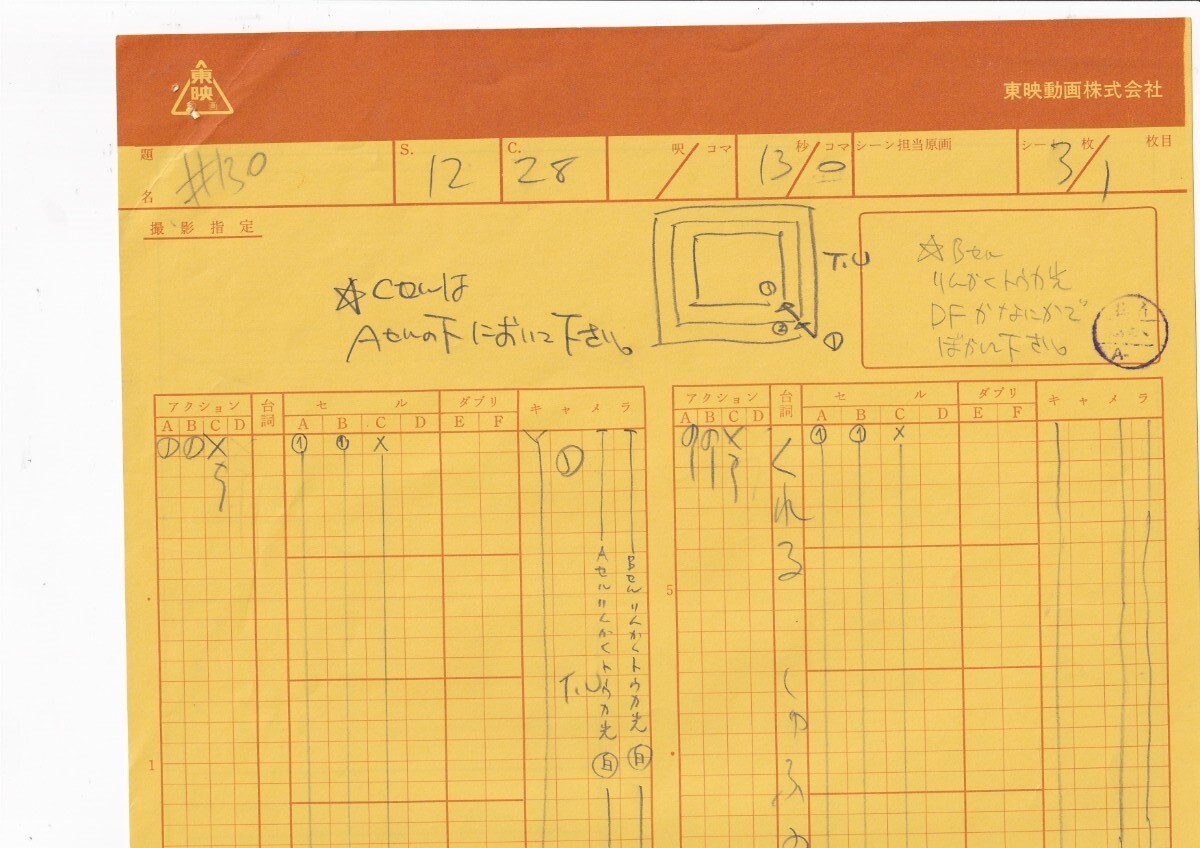 東映
動画
東映動画株式会社
題名
#130
S.
12
C.
28
呎/コマ
13秒/0コマ
シーン担当原画
シート
3枚/1枚目
撮影指定
☆Cセルは
Aセルの下において下さい。
T.U
①
②
①
☆Bセル
りんかくトウカ光
DFかなにかで
ぼかして下さい。
A-
アクション
台詞
セル
ダブリ
キャメラ
A B C D
A B C D E F
① ① X
① ① X
①
Aセルりんかくトウカ光 自
Bセルりんかくトウカ光 自
T.U
1
アクション
台詞
セル
ダブリ
キャメラ
A B C D
A B C D E F
① ① X
① ① X
くれる
5